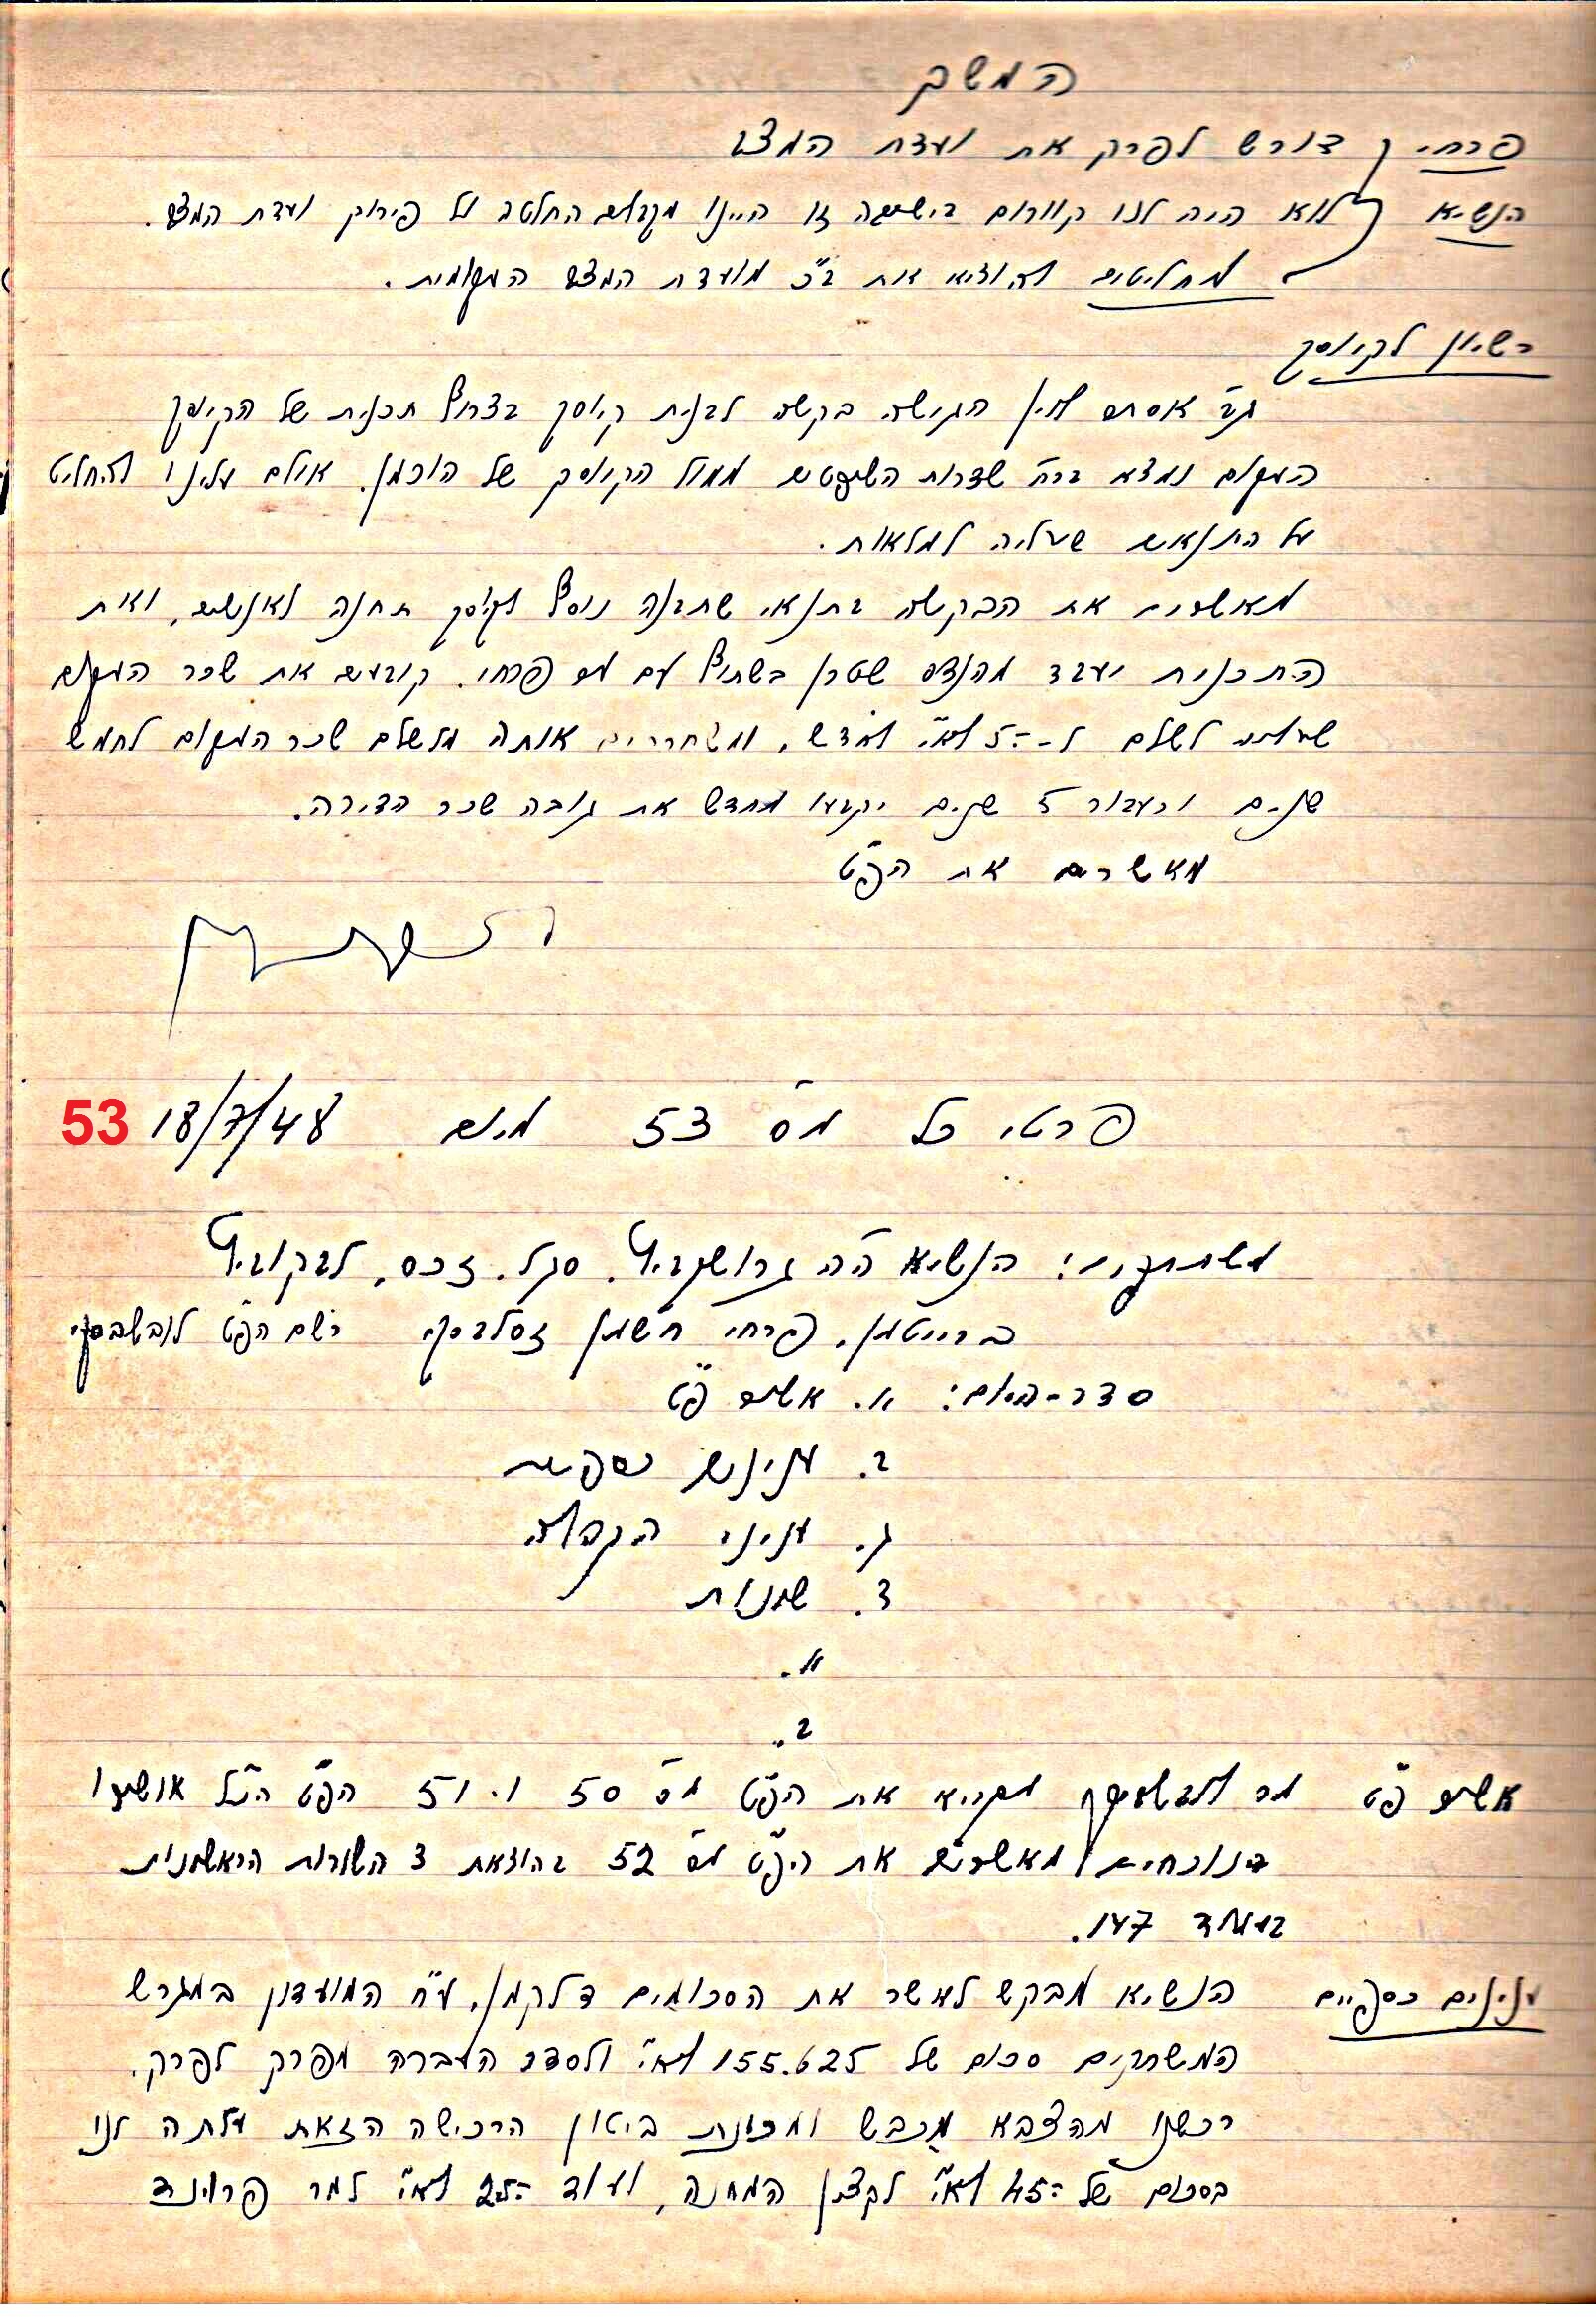 המשך
פרחי דורש לפרק את ועדת המצב
הנשיא לוא היה לנו קוורום בישיבה זו היינו מקבלים החלטה על פירוק ועדת המצב.
מחליטים להוציא את ב"כ מועדת המצב המקומית.
רשיון לקיוסק
גב' אסתר לוין הגישה בקשה לבנית קיוסק בצרוף תכנית של הקיוסק
המקום נמצא ברח' שדרות השופטים ממול הקיוסק של הוכמן. אולם עלינו להחליט
על התנאים שעליה למלאות.
מאשרים את הבקשה בתנאי שתבנה נוסף לקיוסק תחנה לאנשים, ואת
התכנית יעבד מהנדס שטרן בשתוף עם מר פרחי. קובעים את שכר המקום
שעליה לשלם ל-5.- לא"י לחדש, ומשחררים אותה מלשלם שכר המקום לחמש
שנים וכעבור 5 שנים יקבעו מחדש את גובה שכר הדירה.
מאשרים את הפ"ט
פרטי כל מס' 53 מיום 18/7/48 53
משתתפים: הנשיא ה"ה גרושקביץ. סגל. זכס. לבקוביץ
ברייטמן. פרחי חשמן זסלבסקי רשם הפ"ט לובשבסקי
סדר-היום: א. אשור פ"ט
ב. ענינים כספיים
ג. עניני הקבלה
ד. שונות
א.
ב.
אשור פ"ט מר לובשבסקי מקריא את הפ"ט מס' 50 ו. 51 הפ"ט הנ"ל אושרו
הנוכחים מאשרים את הפ"ט מס' 52 בהוצאת 3 השורות הראשונות
בעמוד 147.
ענינים כספיים הנשיא מבקש לאשר את הסכומים דלקמן. ע"ח המועדון במגרש
המשחקים סכום של 155.625 לא"י ולסדר העברה מפרק לפרק.
רכשנו מהצבא מכבש ומכונת ביטון הרכישה הזאת עלתה לנו
בסכום של 45.- לא"י לקצין המחנה, ועוד 25.- לא"י למר פרוינד